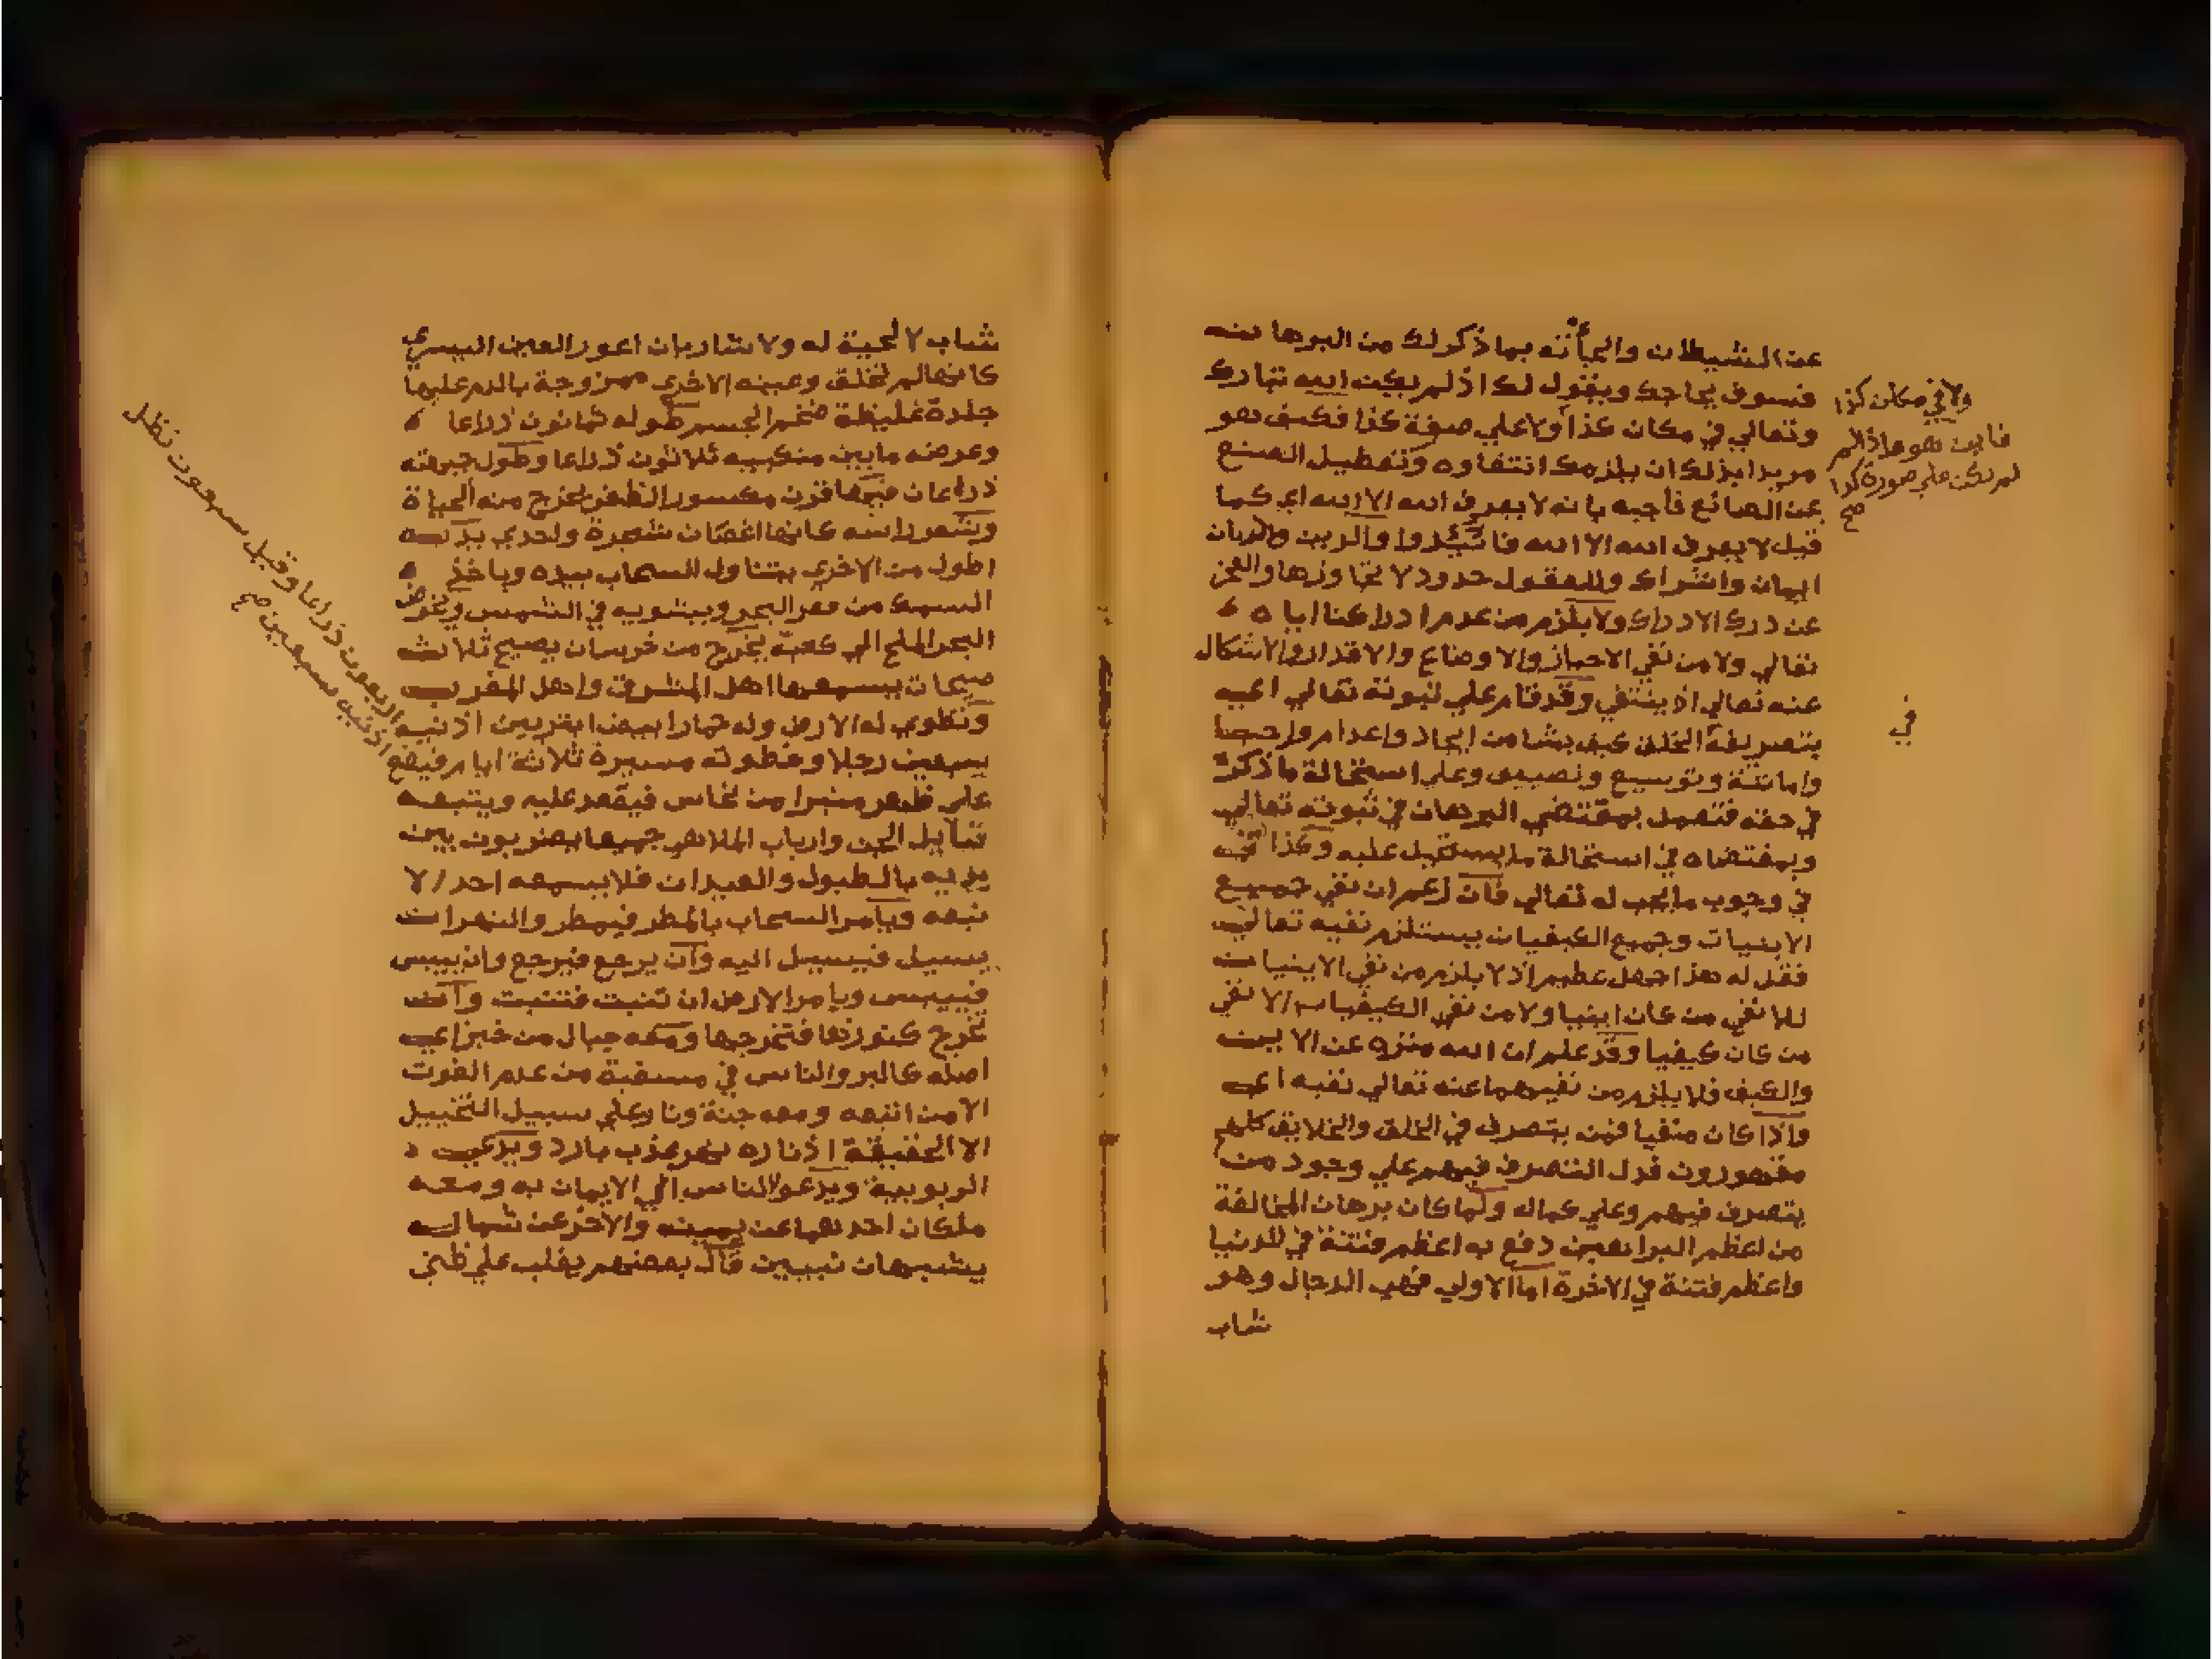 عن الشيطان والجأته بما ذكر لك من البرهان
فسوف يحاجك ويقول لك اذ لم يكن ايه تبارك
وتعالي في مكان كذا ولا علي صفة كذا فكيف هو
مريدا بذلك ان يلزمك انتفاوه وتعطيل الصنع
عن الصانع فاجبه بانه لا يعرف الله الا الله اي كما
قيل لا يعرف الله الا الله فاتئدوا والدين
ايمان واشراك وللعقول حدود لا تجاوزها والعجز
عن درك الادراك ولا يلزم من عدم ادراكنا اياه
تعالي ولا من نفي الاحياز والاوضاع والاقدار والاشكال
عنه تعالي اذ ينتفي وقد قام علي ثبوته تعالي اعني
بتصريفه الخلق كيف يشا من ايجاد واعدام واحيا
واماتة وتوسيع وتضييق وعلي استحالة ما ذكر
في حقه فتعمل بمقتضي البرهان في ثبوته تعالي
وبمقتضاه في استحالة ما يستحيل عليه وكذا
في وجوب ما يجب له تعالي فان زعم ان نفي جميع
الاينيات وجميع الكيفيات يستلزم نفيه تعالي
فقل له هذا جهل عظيم اذ لا يلزم من نفي الاينيات
الا نفي من كان اينيا ولا من نفي الكيفيات الا نفي
من كان كيفيا وقد علم ان الله منزه عن الاين
والكيف فلا يلزم من نفيهما عنه تعالي نفيه اعني
واذا كان منفيا فمن يتصرف في الخلق والخلايق كلهم
مقهورون فدل التصرف فيهم علي وجود من
يتصرف فيهم وعلي كماله ولما كان برهان المخالفة
من اعظم البراهين دفع به اعظم فتنة في الدنيا
واعظم فتنة في الاخرة اما الاولي فهي الدجال وهو
شاب
ولا في مكان كذا
فاين هو واذا لم
لم يكن علي صورة كذا
صح
في
شاب لا لحية له ولا شاربان اعور العين اليسري
كانها لم تخلق وعينه الاخري ممزوجة بالدم عليها
جلدة غليظة ضخم الجسم طوله ثمانون ذراعا
وعرضه ما بين منكبيه ثلاثون ذراعا وطول جبهته
ذراعان فيها قرن مكسور الطفر يخرج منه الحياة
وشعر راسه كانها اغصان شجرة واحدي يديه
اطول من الاخري يتناول السحاب بيده وياخذ
السمك من قعر البحر ويشويه في الشمس ويخوض
البحر الملح الي كعبه يخرج من خرسان يصيح ثلاث
صيحات يسمعها اهل المشرق واهل المغرب
وتطوي له الارض وله حمار ابيض بين اذنيه
بسعين رجلا وخطوته مسيرة ثلاثة ايام فيضع
علي ظهر منبرا من نحاس فيقعد عليه ويتبعه
قبايل الجن وارباب الملاهي جميعا يضربون بين
يديه بالطبول والعيدان فلا يسمعه احد الا
تبعه ويامر السحاب بالمطر فيمطر والنهر ان
يسيل فيسيل اليه وان يرجع فيرجع وان ييبس
فييبس ويامر الارض ان تنبت فتنبت وان
تخرج كنوزها فتخرجها ومعه جبال من خبز اعني
اصله كالبر والناس في مسغبة من عدم القوت
الا من اتبعه ومعه جنة ونار علي سبيل التخييل
الا الحقيقة اذ ناره نهر عذب بارد ويدعي
الربوبية ويدعو الناس الي الايمان به ومعه
ملكان احدهما عن يمينه والاخر عن شماله
يشبهان نبيين قال بعضهم يغلب علي ظني
اربعون ذراعا وقيل سبعون تظل
اذنيه سبعين صح